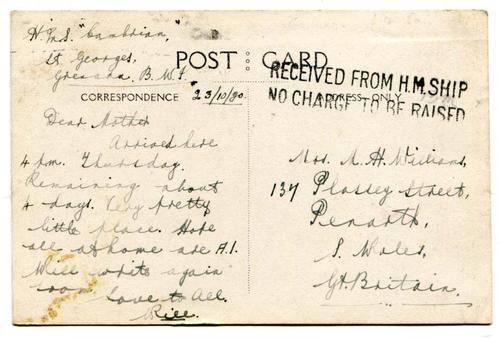 H.M.S. "Cambrian,"
St Georges,
Grenada. B.W.I.
23/10/30.
POST CARD
RECEIVED FROM H.M.SHIP
NO CHARGE TO BE RAISED
CORRESPONDENCE
ADDRESS ONLY
Dear Mother
Arrived here
4 pm. Thursday.
Remaining about
4 days. Very pretty
little place. Hope
all at home are A.1.
Will write again
soon.
Love to All.
Mrs. M. H. Williams,
137 Plassey Street,
Penarth,
S. Wales,
Gt. Britain.